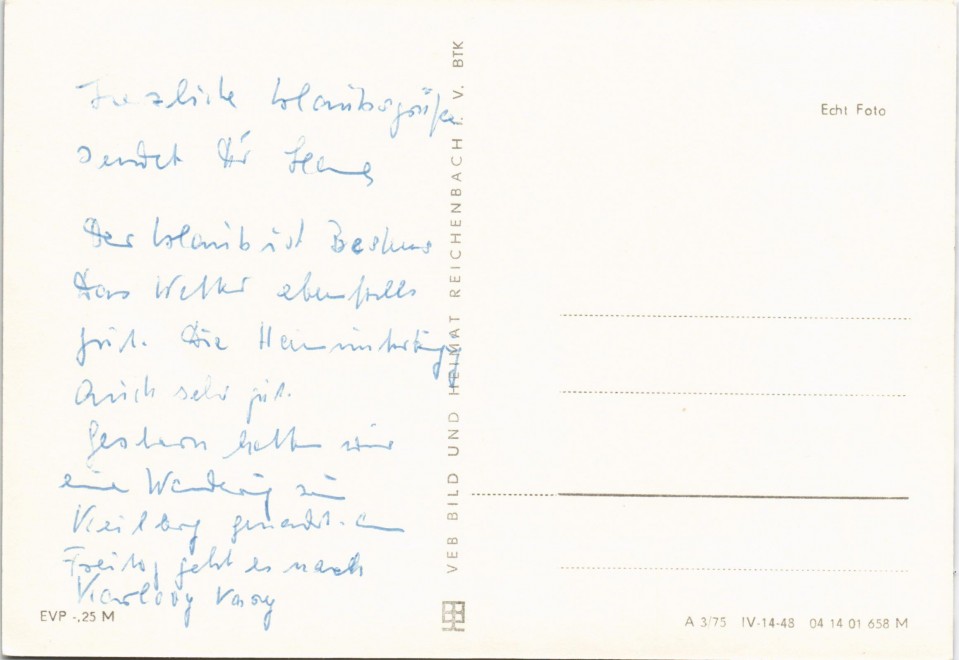 Herzliche Urlaubsgrüße
sendet Dir Hans
Der Urlaub ist Bestens
Das Wetter ebenfalls
gut. Die
Auch sehr gut.
Gestern hatten wir
eine Wanderung zum
Keilberg gemacht. Am
Freitag geht es nach
Karlovy Vary
EVP -.25 M
VEB BILD UND HEIMAT REICHENBACH I. V. BTK
Echt Foto
A 3/75 IV-14-48 04 14 01 658 M